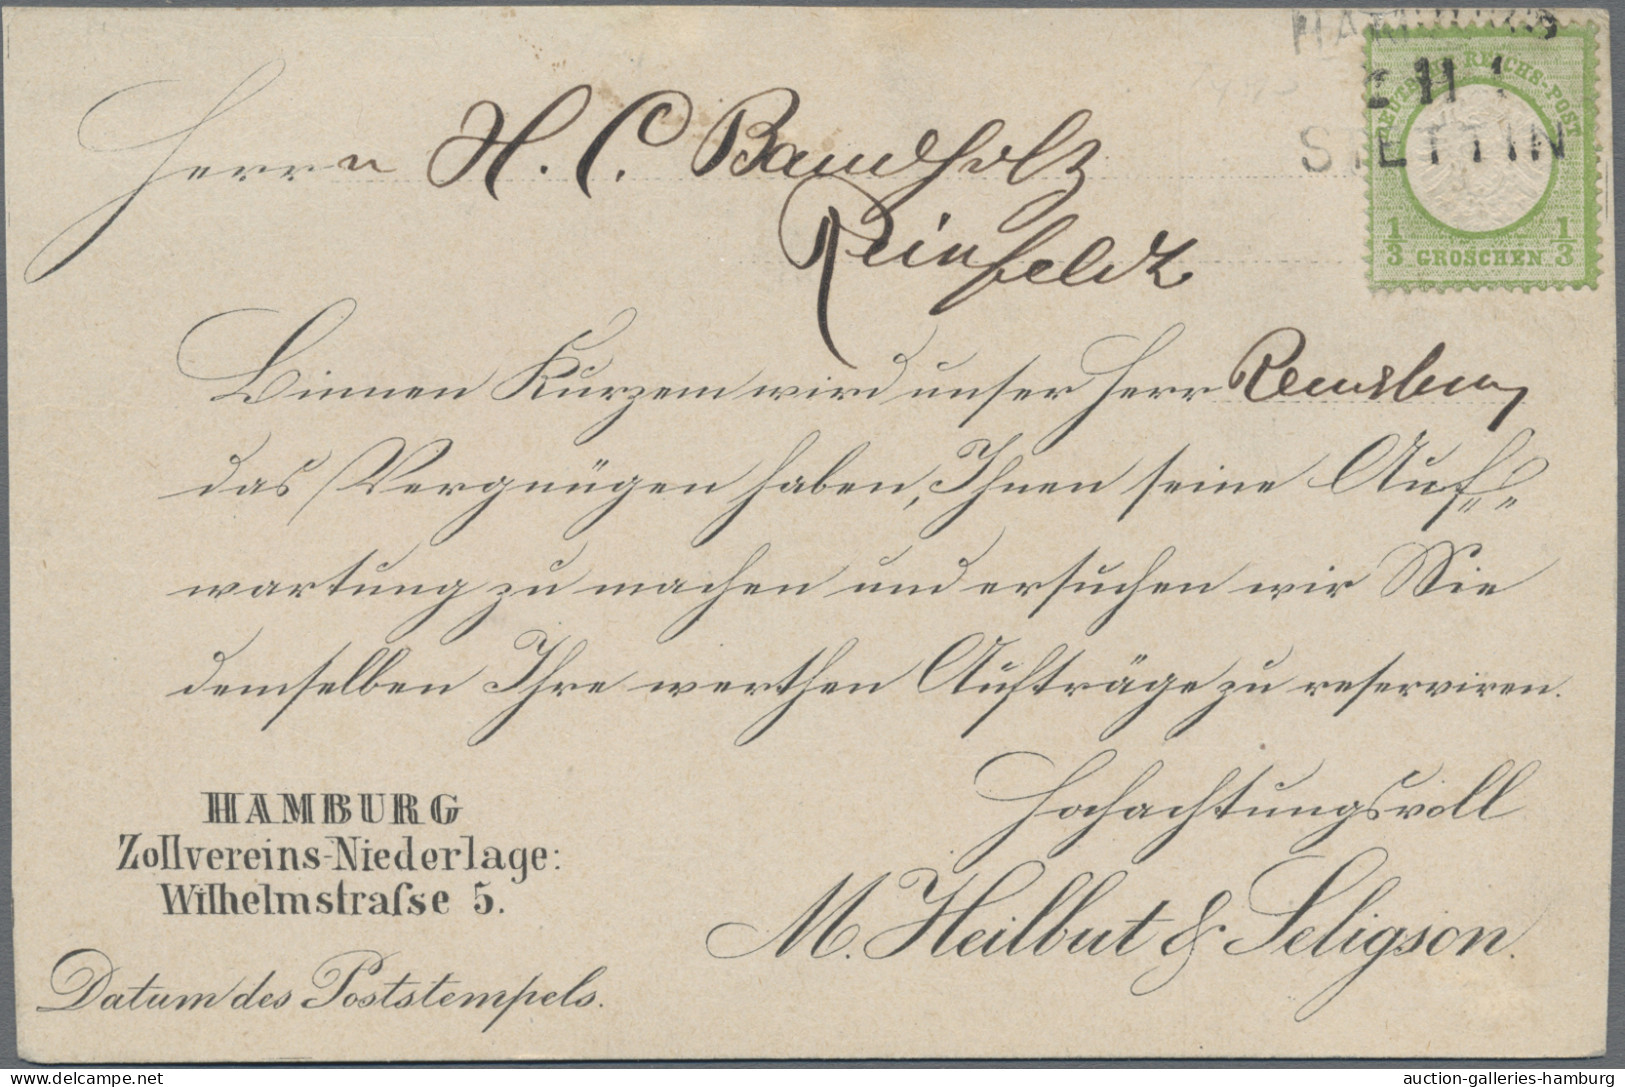 HAMBURG
2 11 1
STETTIN
DEUTSCHE REICHS-POST
1/3 GROSCHEN 1/3
Herrn H. C. Bandholz
Reinfeldt
Binnen Kurzem wird unser Herr
das Vergnügen haben, Ihnen seine Auf-
wartung zu machen und ersuchen wir Sie
demselben Ihre werthen Aufträge zu reserviren.
Hochachtungsvoll
M. Heilbut & Seligson.
HAMBURG
Zollvereins-Niederlage:
Wilhelmstraſse 5.
Datum des Poststempels.
delcampe.net
auction-galleries-hamburg